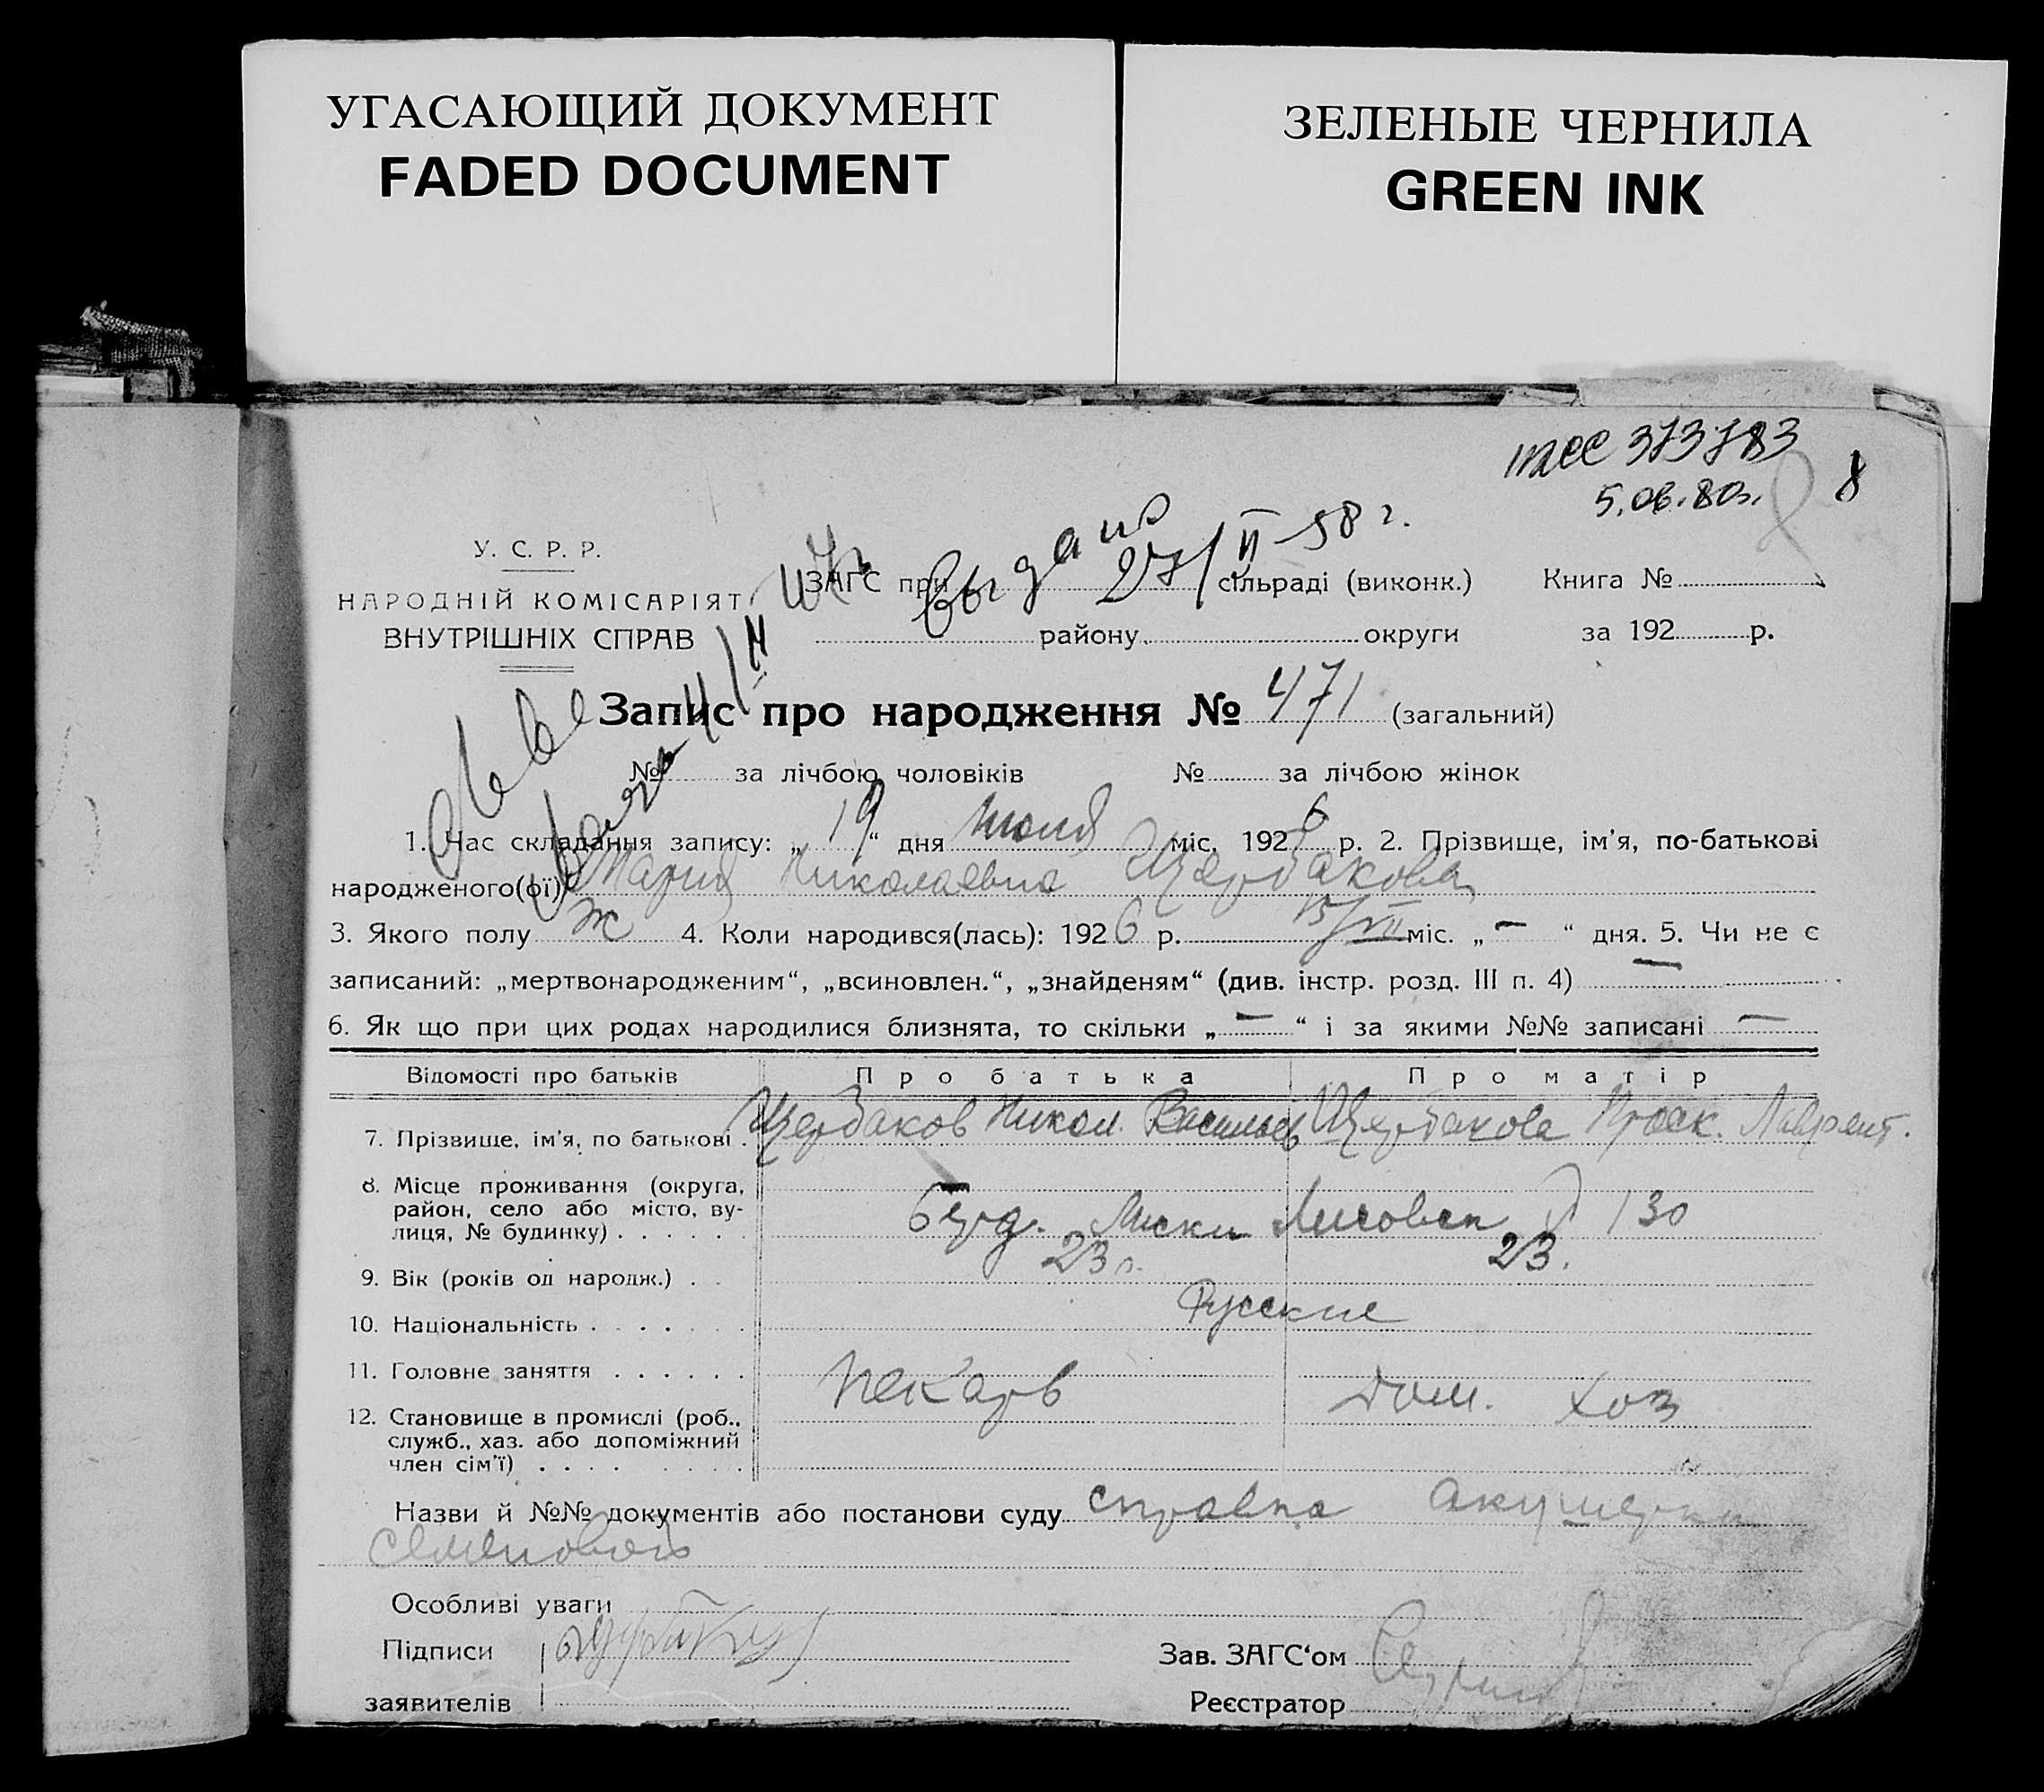 УГАСАЮЩИЙ ДОКУМЕНТ
FADED DOCUMENT
ЗЕЛЕНЫЕ ЧЕРНИЛА
GREEN INK
373783
5.06.80г.
8
У. С. Р. Р.
НАРОДНІЙ КОМІСАРІЯТ
ВНУТРІШНІХ СПРАВ
Выдано 27/II 58 г.
ЗАГС при сільраді (виконк.)
району округи
Книга №
за 192 р.
Запис про народження № 471 (загальний)
№ за лічбою чоловіків № за лічбою жінок
1. Час складання запису: „19“ дня июля міс. 1926 р. 2. Прізвище, ім'я, по-батькові
народженого(ої) Мария Николаевна Щербакова
3. Якого полу ж 4. Коли народився(лась): 1926 р. 15/VII міс. „ — “ дня. 5. Чи не є
записаний: „мертвонародженим“, „всиновлен.“, „знайденям“ (див. інстр. розд. III п. 4) —
6. Як що при цих родах народилися близнята, то скільки „ — “ і за якими №№ записані —
Відомості про батьків Про батька Про матір
7. Прізвище, ім'я, по батькові . Щербаков Никол. Васильев Щербакова Праск. Лаврент.
8. Місце проживання (округа,
район, село або місто, ву-
лиця, № будинку) . . . . . . 130
9. Вік (років од народж.) . . 23 23.
10. Національність . . . . . . Русские
11. Головне заняття . . . . . . Пекарь Дом. хоз
12. Становище в промислі (роб.,
служб., хаз. або допоміжний
член сім'ї) . . . . . . . .
Назви й №№ документів або постанови суду справка акушерки
Семеновой
Особливі уваги
Підписи
заявителів
Зав. ЗАГС‘ом
Реєстратор